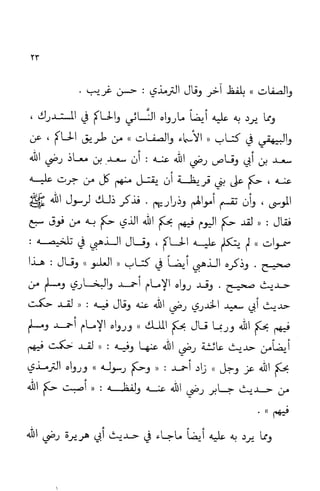 ٢٣
والصفات » بلفظ آخر وقال الترمذي : حسن غريب .
ومما يرد به عليه أيضاً مارواه النَّسائي والحاكم في المستدرك ،
والبيهقي في كتاب » الأسماء والصفات » من طريق الحاكم ، عن
سعد بن أبي وقاص رضي الله عنه : أن سعد بن معاذ رضي الله
عنه ، حكم على بني قريظة أن يقتل منهم كل من جرت عليه
الموسى ، وأن تقسم أموالهم وذراريهم . فذكر ذلك لرسول الله ﷺ
فقال : « لقد حكم اليوم فيهم بحكم الله الذي حكم به من فوق سبع
سموات » لم يتكلم عليه الحاكم ، وقال الذهبي في تلخيصه :
صحيح . وذكره الذهبي أيضاً في كتاب « العلو » وقال : هذا
حديث صحيح . وقد رواه الإمام أحمد والبخاري ومسلم من
حديث أبي سعيد الخدري رضي الله عنه وقال فيه : « لقد حكمت
فيهم بحكم الله وربما قال بحكم الملك » ورواه الإمام أحمد ومسلم
أيضاً من حديث عائشة رضي الله عنها وفيه : « لقد حكمت فيهم
بحكم الله عز وجل » زاد أحمد : « وحكم رسوله » ورواه الترمذي
من حديث جابر رضي الله عنه ولفظه : « أصبت حكم الله
فيهم » .
ومما يرد به عليه أيضاً ماجاء في حديث أبي هريرة رضي الله